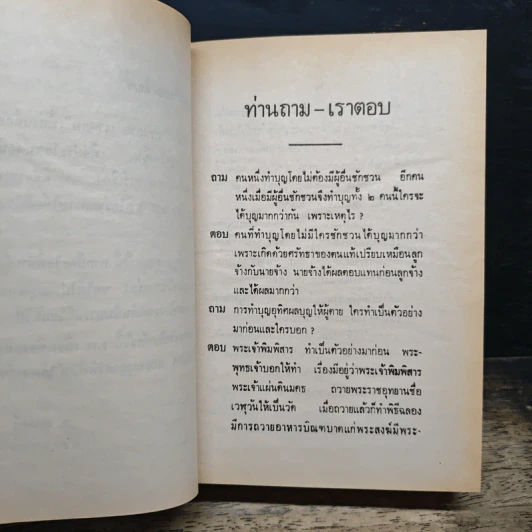 ท่านถาม – เราตอบ
ถาม คนหนึ่งทำบุญโดยไม่ต้องมีผู้อื่นชักชวน อีกคน
หนึ่งเมื่อมีผู้อื่นชักชวนจึงทำบุญทั้ง ๒ คนนี้ใครจะ
ได้บุญมากกว่ากัน เพราะเหตุไร ?
ตอบ คนที่ทำบุญโดยไม่มีใครชักชวนได้บุญมากกว่า
เพราะเกิดด้วยศรัทธาของตนแท้เปรียบเหมือนลูก
จ้างกับนายจ้าง นายจ้างได้ผลตอบแทนก่อนลูกจ้าง
และได้ผลมากกว่า
ถาม การทำบุญอุทิศผลบุญให้ผู้ตาย ใครทำเป็นตัวอย่าง
มาก่อนและใครบอก ?
ตอบ พระเจ้าพิมพิสาร ทำเป็นตัวอย่างมาก่อน พระ-
พุทธเจ้าบอกให้ทำ เรื่องมีอยู่ว่าพระเจ้าพิมพิสาร
พระเจ้าแผ่นดินมคธ ถวายพระราชอุทยานชื่อ
เวฬุวันให้เป็นวัด เมื่อถวายแล้วก็ทำพิธีฉลอง
มีการถวายอาหารบิณฑบาตแก่พระสงฆ์มีพระ-